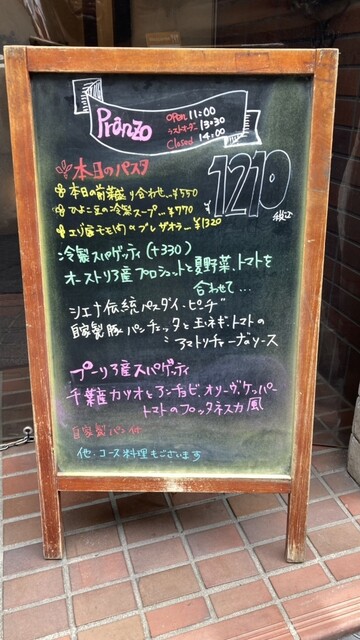 Pranzo
OPEN 11:00
ラストオーダー 13:30
Closed 14:00
本日のパスタ
¥1210
税込
本日の前菜盛り合わせ...¥550
ひよこ豆の冷製スープ...¥770
エゾ鹿モモ肉のブレザオラ...¥1320
冷製スパゲッティ (+330)
オーストリア産プロシュットと夏野菜、トマトを
合わせて...
シエナ伝統パスタ、ピーチ
自家製豚パンチェッタと玉ネギ、トマトの
アマトリチャーナソース
プーリア産スパゲッティ
千葉産カツオとアンチョビ、オリーヴ、ケッパー
トマトのプッタネスカ風
自家製パン付
他、コース料理もございます